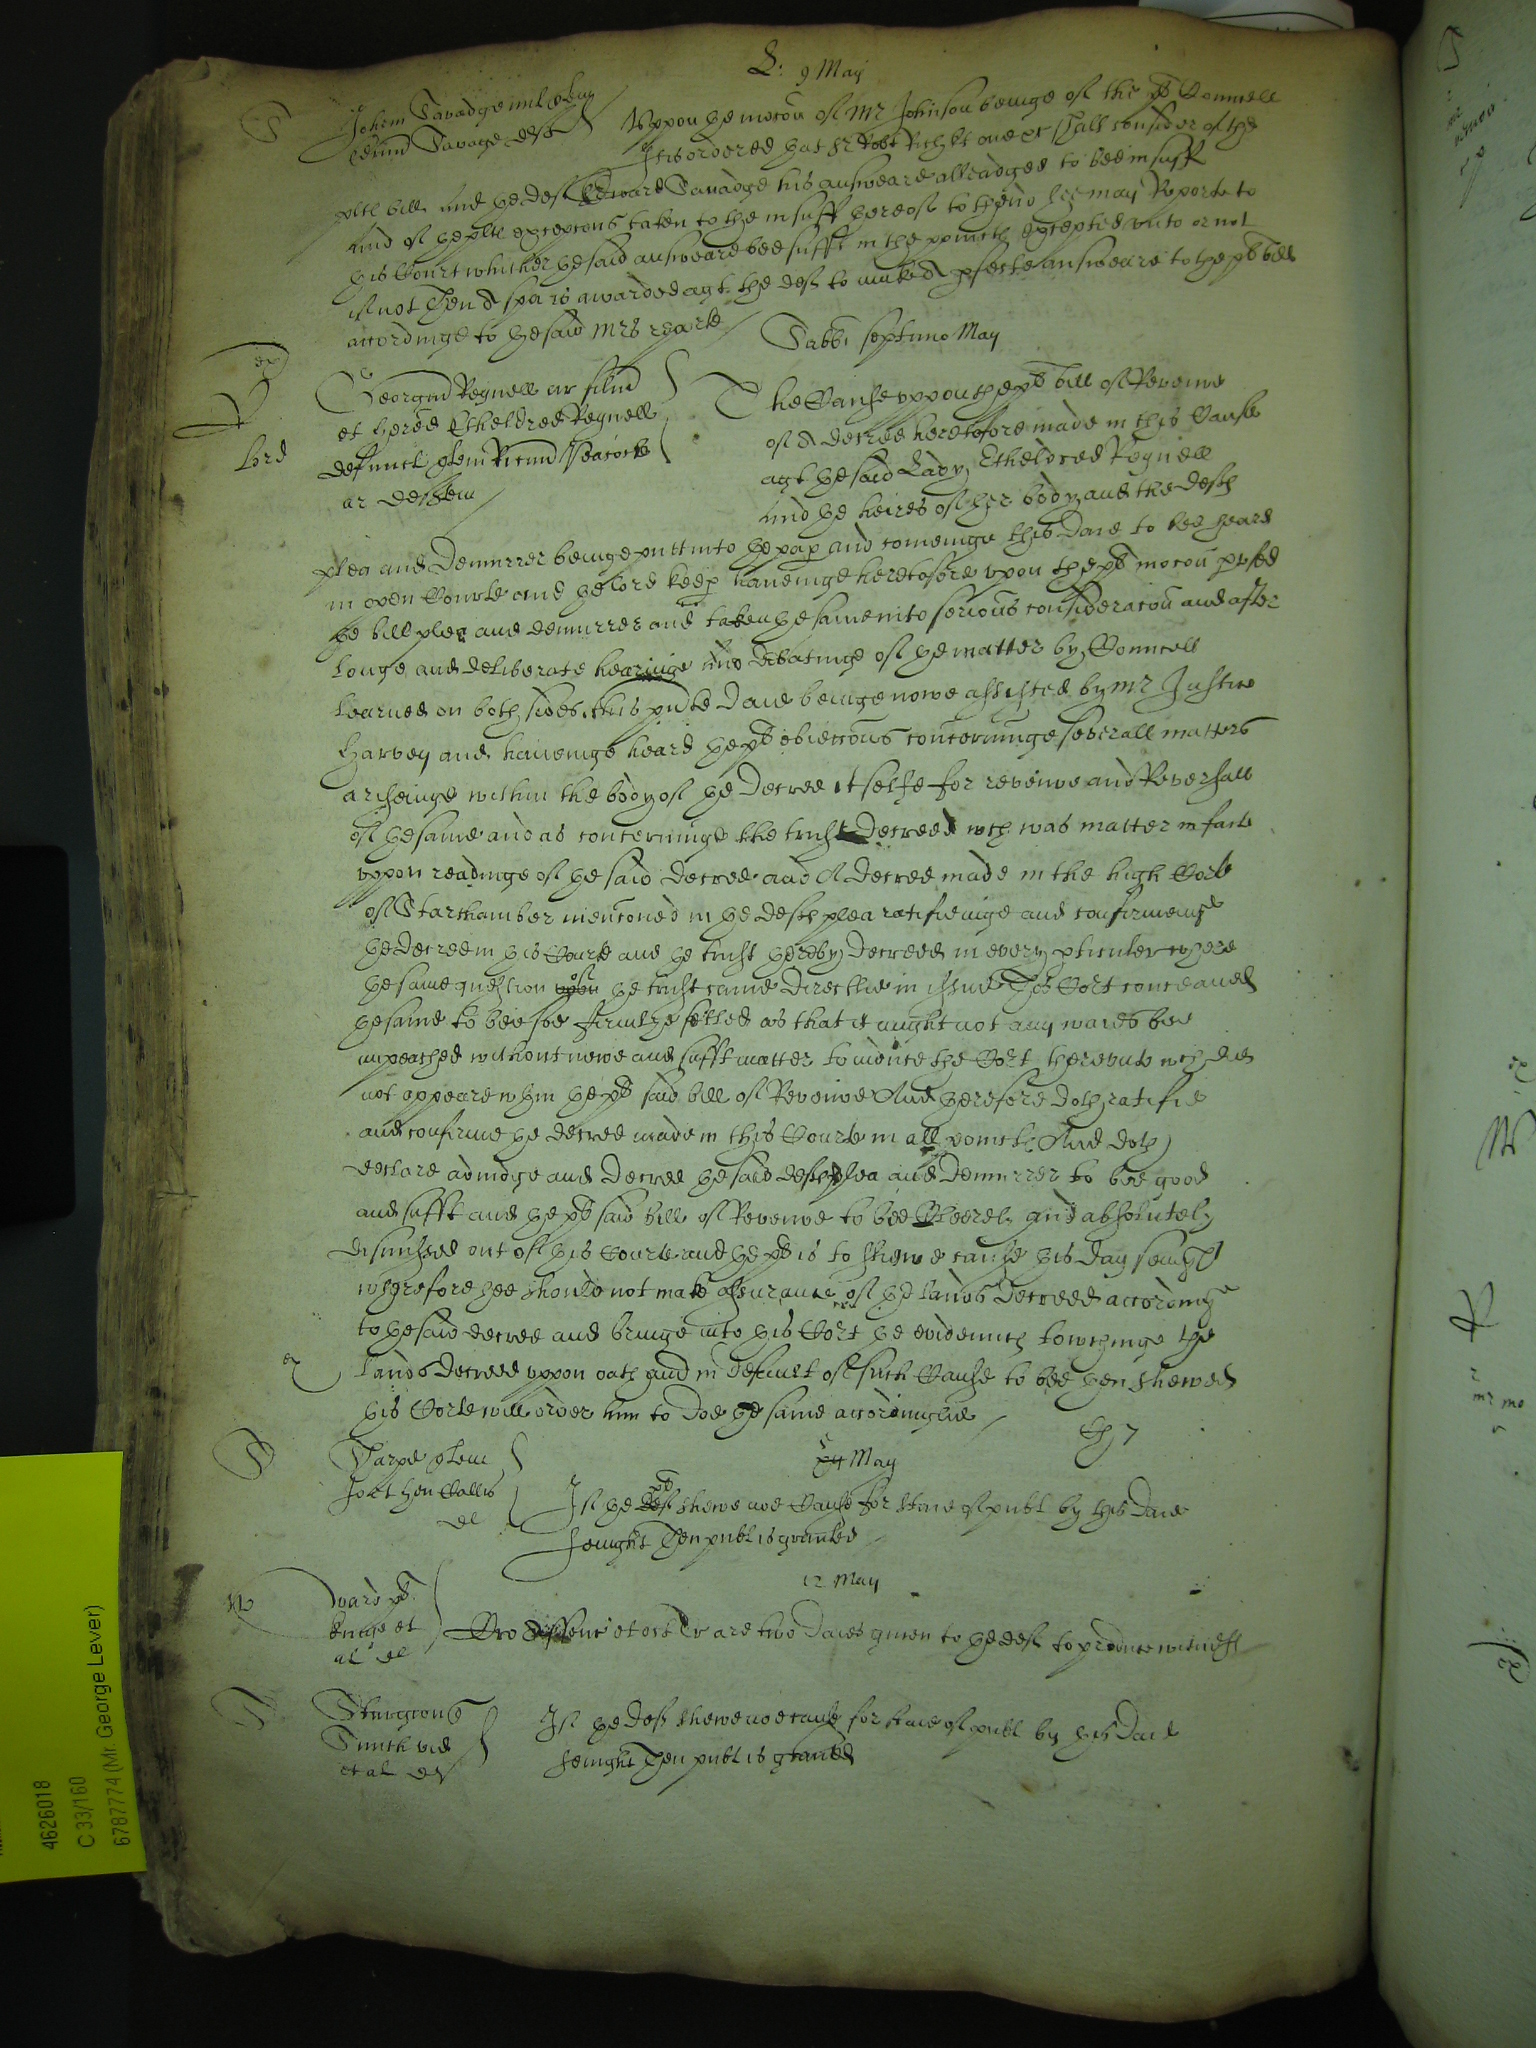 L: 9 May
S
Johem Savadge mil quer
Edrum Savage deft
Uppon the mocon of Mr Johnson beinge of the pl Councell
It is ordered that Sr Robt Rich kt one etc shall consider of the
pltes bill and the deft Edward Savadge his answeare alleadged to bee insuff
and of the pltes exceptions taken to the insuff thereof to thend hee may Reporte to
this Court whither the said answeare bee sufft in the pointes excepted unto or not
if not Then a spa is awarded agt the deft to make a pfecte answeare to the pl bill
accordinge to the said Mrs reporte
Sabbi septimo May
ex
R
lord
Georgiu Reynell ar filiu
et hered Etheldred Reynell
defunct quem Ricum Peacocke
ar deftem
The Cause uppon the pl bill of Revewe
of a decree heretofore made in this Cause
agt the said Lady Etheldred Reynell
and the heires of her body and the deftes
plea and Demurrer beinge putt into the pap and comeinge this Daie to bee heard
in open Courte and the lord keep haveinge heretofore upon the pl mocon pused
the bill plea and demurrer and taken the same into serious consideracon and after
longe and deliberate hearinge and debatinge of the matter by Councell
learned on both sides this pnte Daie beinge nowe assisted by Mr Justice
Harvey and haveinge heard the pl obiections concerninge severall matters
ariseinge within the body of the Decree it selfe for revewe and Reversall
of the same and as concerninge the trust Decreed wch was matter in facte
uppon readinge of the said decree and A Decree made in the high Corte
of Starchamber mencioned in the deftes plea ratifieinge and confirmeinge
the decree in this Courte and the trust thereby Decreed in every pticuler where
the same question upon of the trust came Directlie in issue This Cort conceaved
the same to bee soe firmlye setled as that it might not any waies bee
impeached without newe and sufft matter to induce the Cort thereunto wch did
not appeare wthin the pl said bill of Revewe And therefore doth ratifie
and confirme the decree made in this Courte in all pointes And doth
declare adiudge and Decree the said deftes plea and Demurrer to bee good
and sufft and the pl said bill of Revewe to bee Cleerely and absolutely
dismissed out of this Courte and the pl is to shewe cause this day seavenight
wherefore hee should not make assurance of the lands Decreed accordinge
to the said decree and bringe into this Cort the evidences towchinge the
ex
lands Decreed uppon oath and in default of such Cause to bee then shewed
this Corte will order him to doe the same accordinglie
S
Sharpe quer
Jon Hen Wallis
de
24 May
If the deft pl shewe noe Cause for staie of publ by this Daie
senight Then publ is graunted
W
Ward pl
et
al de
12 May
are two Daies given to the deft to produce witness
S
Sturgion
Smith vid
et al de
If the Deft shewe noe cause for staie of publ by this Daie
senight Then publ is graunted
4626018
C 33/160
6787774 (Mr. George Lever)